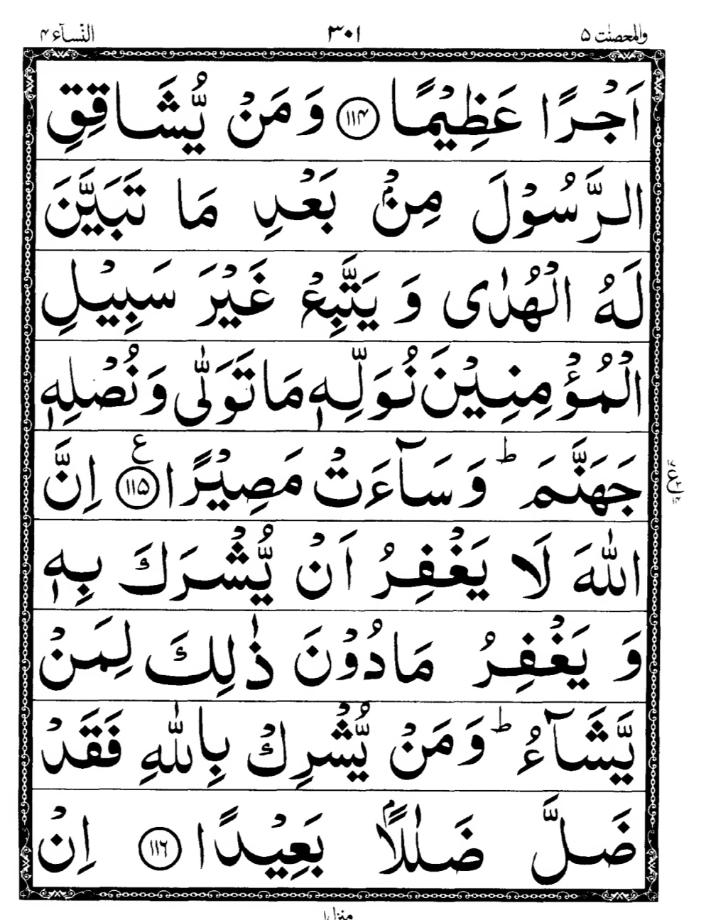 والمحصنت ۵ ۳۰۱ النسآء ۴
اَجْرًا عَظِيْمًا ۝۱۱۴ وَ مَنْ يُّشَاقِقِ
الرَّسُوْلَ مِنْۢ بَعْدِ مَا تَبَيَّنَ
لَهُ الْهُدٰى وَ يَتَّبِعْ غَيْرَ سَبِيْلِ
الْمُؤْمِنِيْنَ نُوَلِّهٖ مَا تَوَلّٰى وَ نُصْلِهٖ
جَهَنَّمَ ؕ وَ سَآءَتْ مَصِيْرًا ۝۱۱۵ ع اِنَّ
اللّٰهَ لَا يَغْفِرُ اَنْ يُّشْرَكَ بِهٖ
وَ يَغْفِرُ مَا دُوْنَ ذٰلِكَ لِمَنْ
يَّشَآءُ ؕ وَ مَنْ يُّشْرِكْ بِاللّٰهِ فَقَدْ
ضَلَّ ضَلٰلًاۢ بَعِيْدًا ۝۱۱۶ اِنْ
منزل ۱